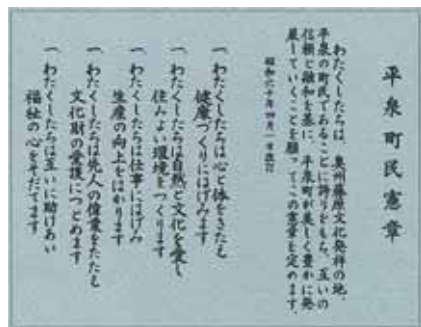 平泉町民憲章
わたくしたちは、奥州藤原文化発祥の地、
平泉の町民であることに誇りをもち、互いの
信頼と融和を基に、平泉町が美しく豊かに発
展していくことを願ってこの憲章を定めます。
昭和六十年四月一日改訂
一、わたくしたちは心と体をきたえ
健康づくりにはげみます
一、わたくしたちは自然と文化を愛し
住みよい環境をつくります
一、わたくしたちは仕事にはげみ
生産の向上をはかります
一、わたくしたちは先人の偉業をたたえ
文化財の愛護につとめます
一、わたくしたちは互いに助けあい
福祉の心をそだてます